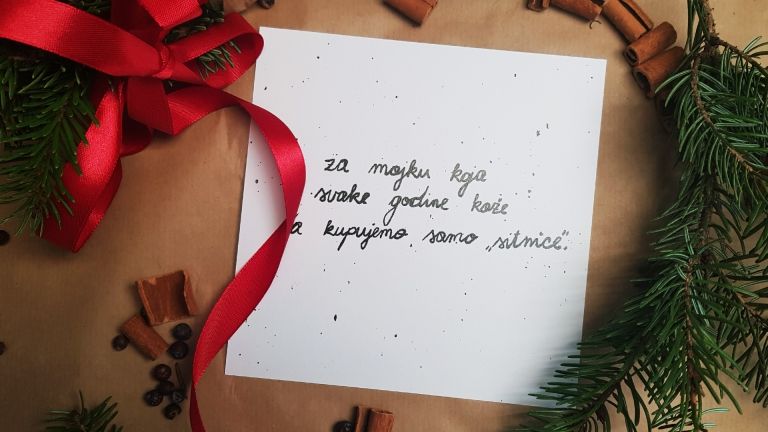 za mojku kga
svake godine kaže
a kupujemo samo „sitnice“.